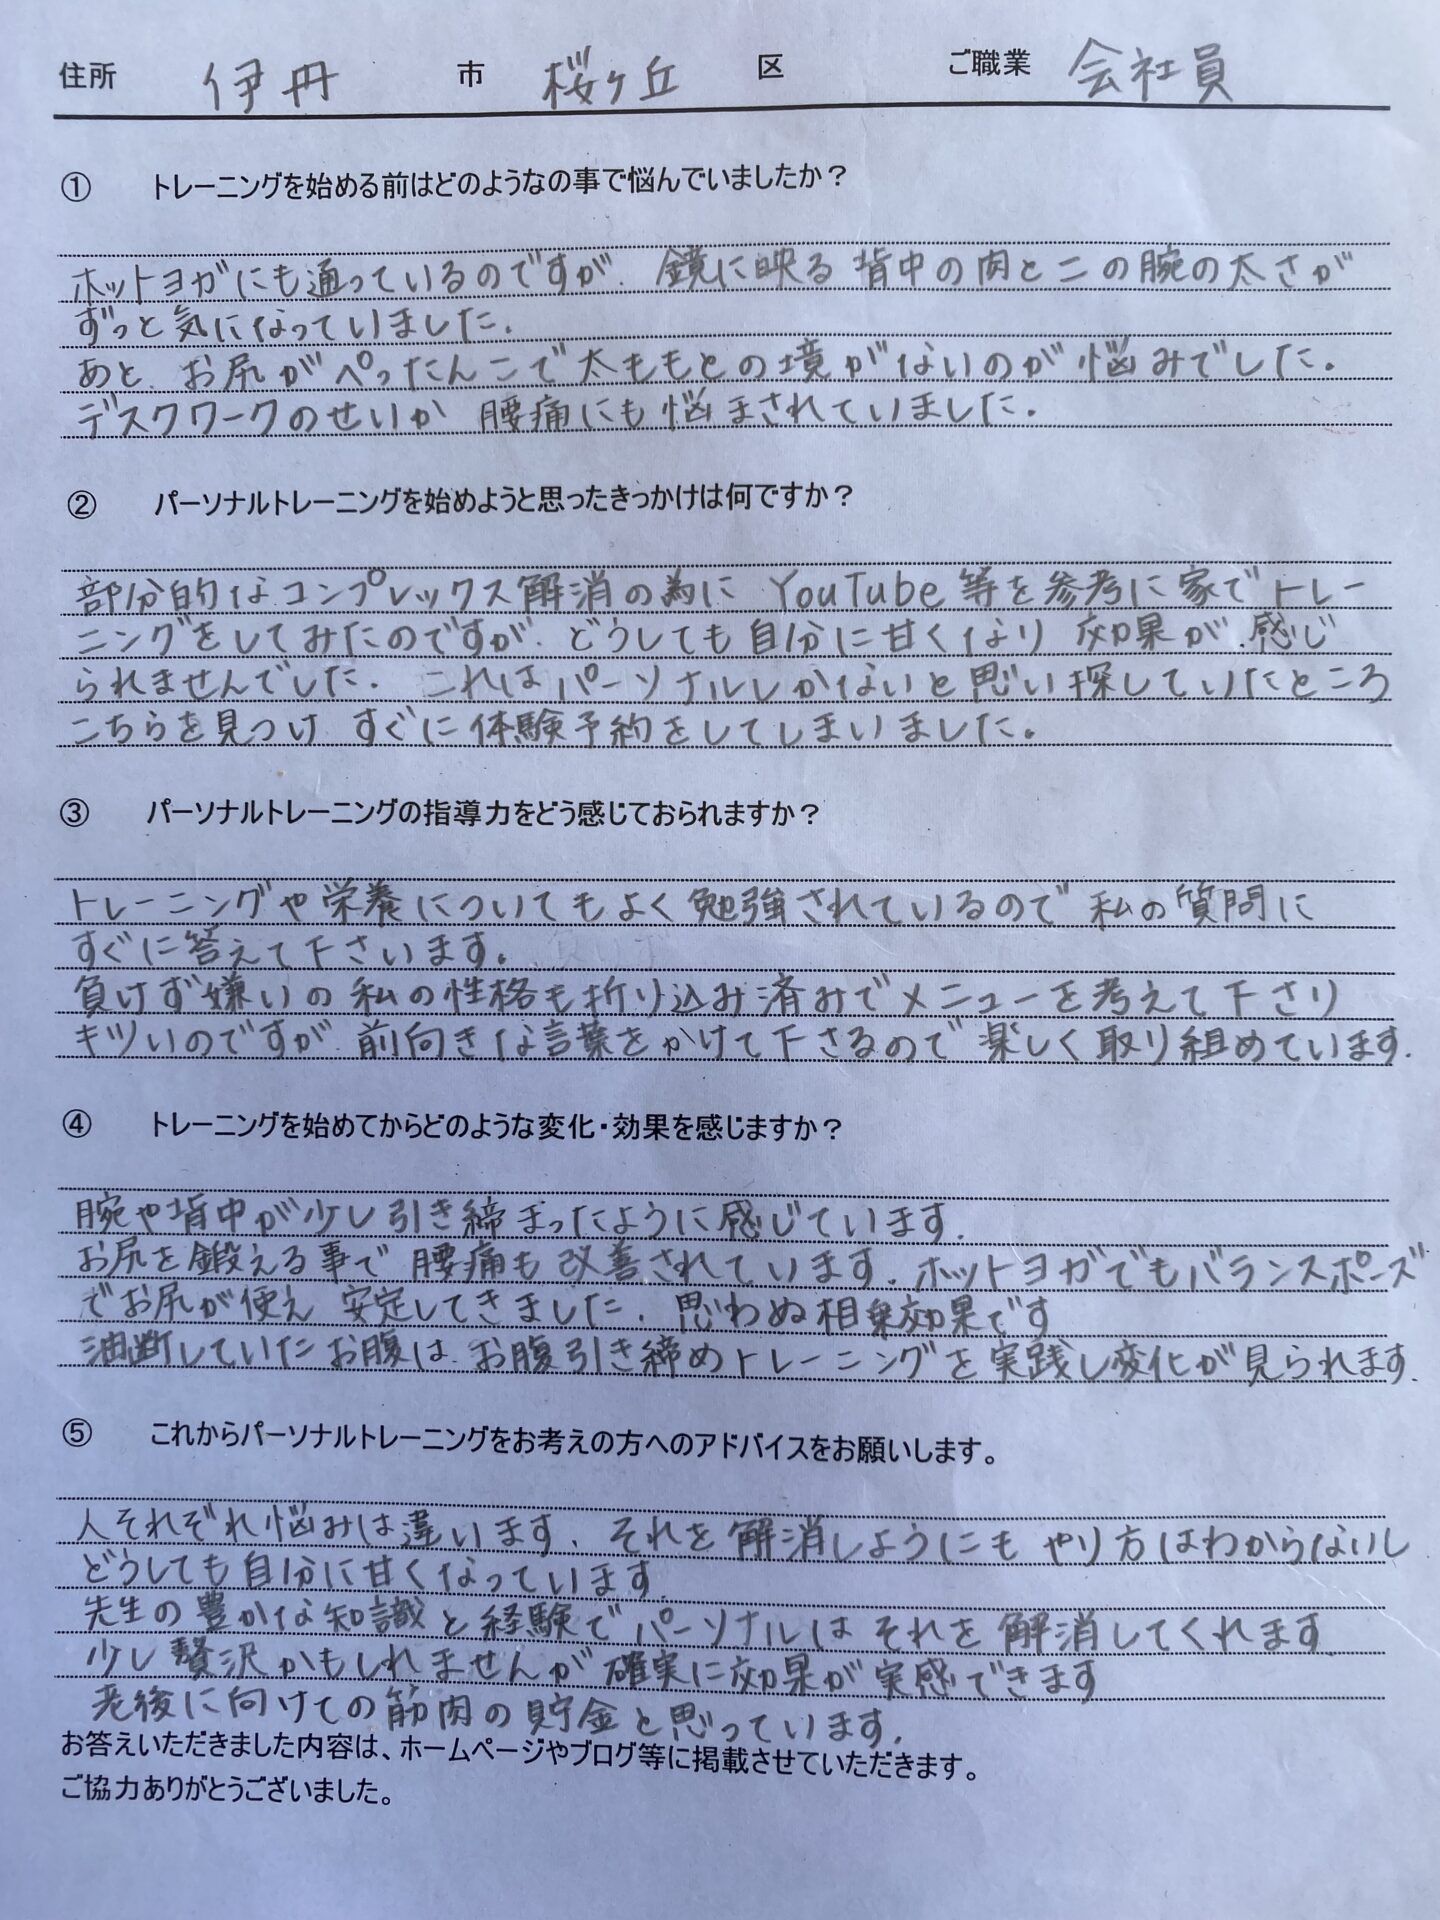 住所 伊丹 市 桜ヶ丘 区 ご職業 会社員
① トレーニングを始める前はどのようなの事で悩んでいましたか？
ホットヨガにも通っているのですが、鏡に映る背中の肉と二の腕の太さが
ずっと気になっていました。
あと、お尻がぺったんこで太ももとの境がないのが悩みでした。
デスクワークのせいか 腰痛にも悩まされていました。
② パーソナルトレーニングを始めようと思ったきっかけは何ですか？
部分的なコンプレックス解消の為に YouTube等を参考に家でトレー
ニングをしてみたのですが、どうしても自分に甘くなり 効果が感じ
られませんでした。これはパーソナルしかないと思い探していたところ
こちらを見つけ すぐに体験予約をしてしまいました。
③ パーソナルトレーニングの指導力をどう感じておられますか？
トレーニングや栄養についてもよく勉強されているので 私の質問に
すぐに答えて下さいます。
負けず嫌いの私の性格も折り込み済みでメニューを考えて下さり
キツいのですが、前向きな言葉をかけて下さるので楽しく取り組めています。
④ トレーニングを始めてからどのような変化・効果を感じますか？
腕や背中が少し引き締まったように感じています。
お尻を鍛える事で 腰痛も改善されています。ホットヨガでもバランスポーズ
でお尻が使え 安定してきました。思わぬ相乗効果です
油断していたお腹は、お腹引き締めトレーニングを実践し変化が見られます。
⑤ これからパーソナルトレーニングをお考えの方へのアドバイスをお願いします。
人それぞれ悩みは違います、それを解消しようにも やり方はわからないし
どうしても自分に甘くなっています。
先生の豊かな知識と経験でパーソナルは それを解消してくれます
少し贅沢かもしれませんが確実に効果が実感できます
老後に向けての筋肉の貯金と思っています。
お答えいただきました内容は、ホームページやブログ等に掲載させていただきます。
ご協力ありがとうございました。